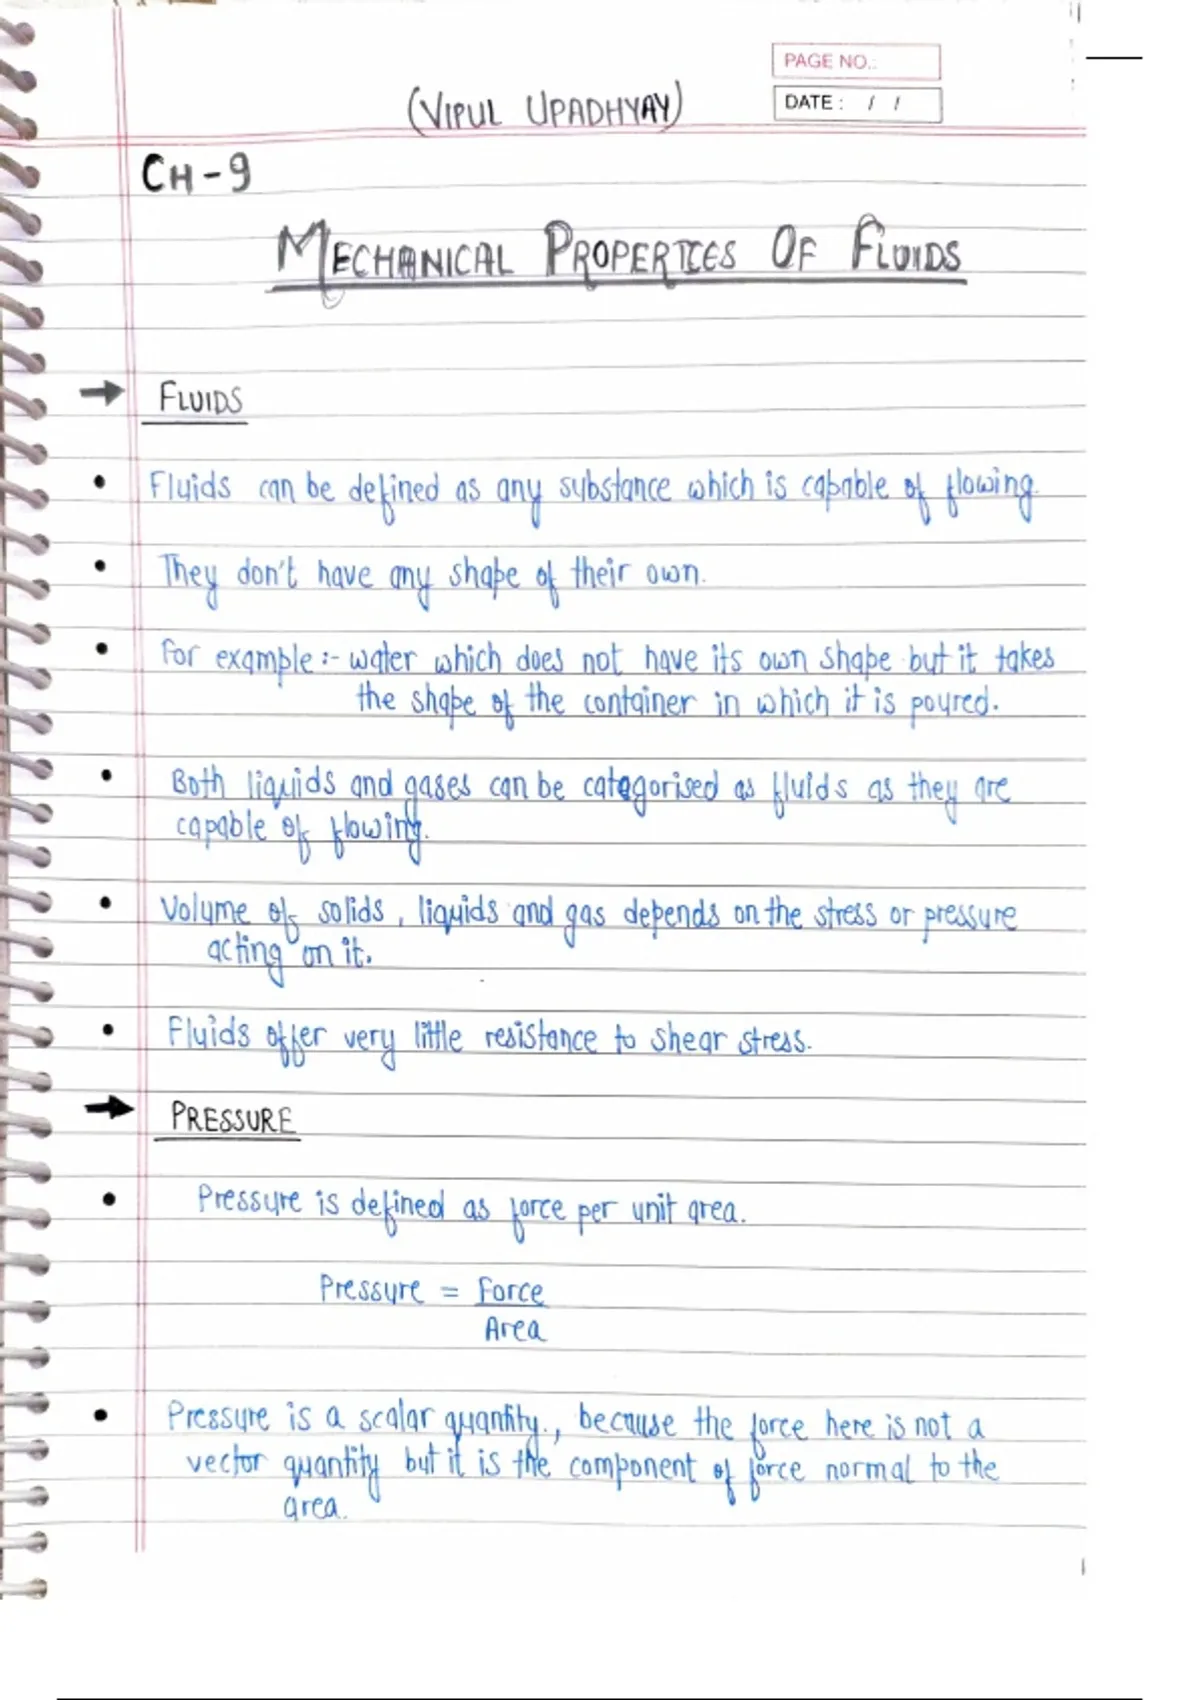 PAGE NO.:
(VIPUL UPADHYAY)
DATE : / /
CH-9
MECHANICAL PROPERTIES OF FLUIDS
→ FLUIDS
• Fluids can be defined as any substance which is capable of flowing.
• They don't have any shape of their own.
• For example :- water which does not have its own shape but it takes
the shape of the container in which it is poured.
• Both liquids and gases can be categorised as fluids as they are
capable of flowing.
• Volume of solids, liquids and gas depends on the stress or pressure
acting on it.
• Fluids offer very little resistance to shear stress.
→ PRESSURE
• Pressure is defined as force per unit area.
Pressure = Force
Area
• Pressure is a scalar quantity., because the force here is not a
vector quantity but it is the component of force normal to the
area.